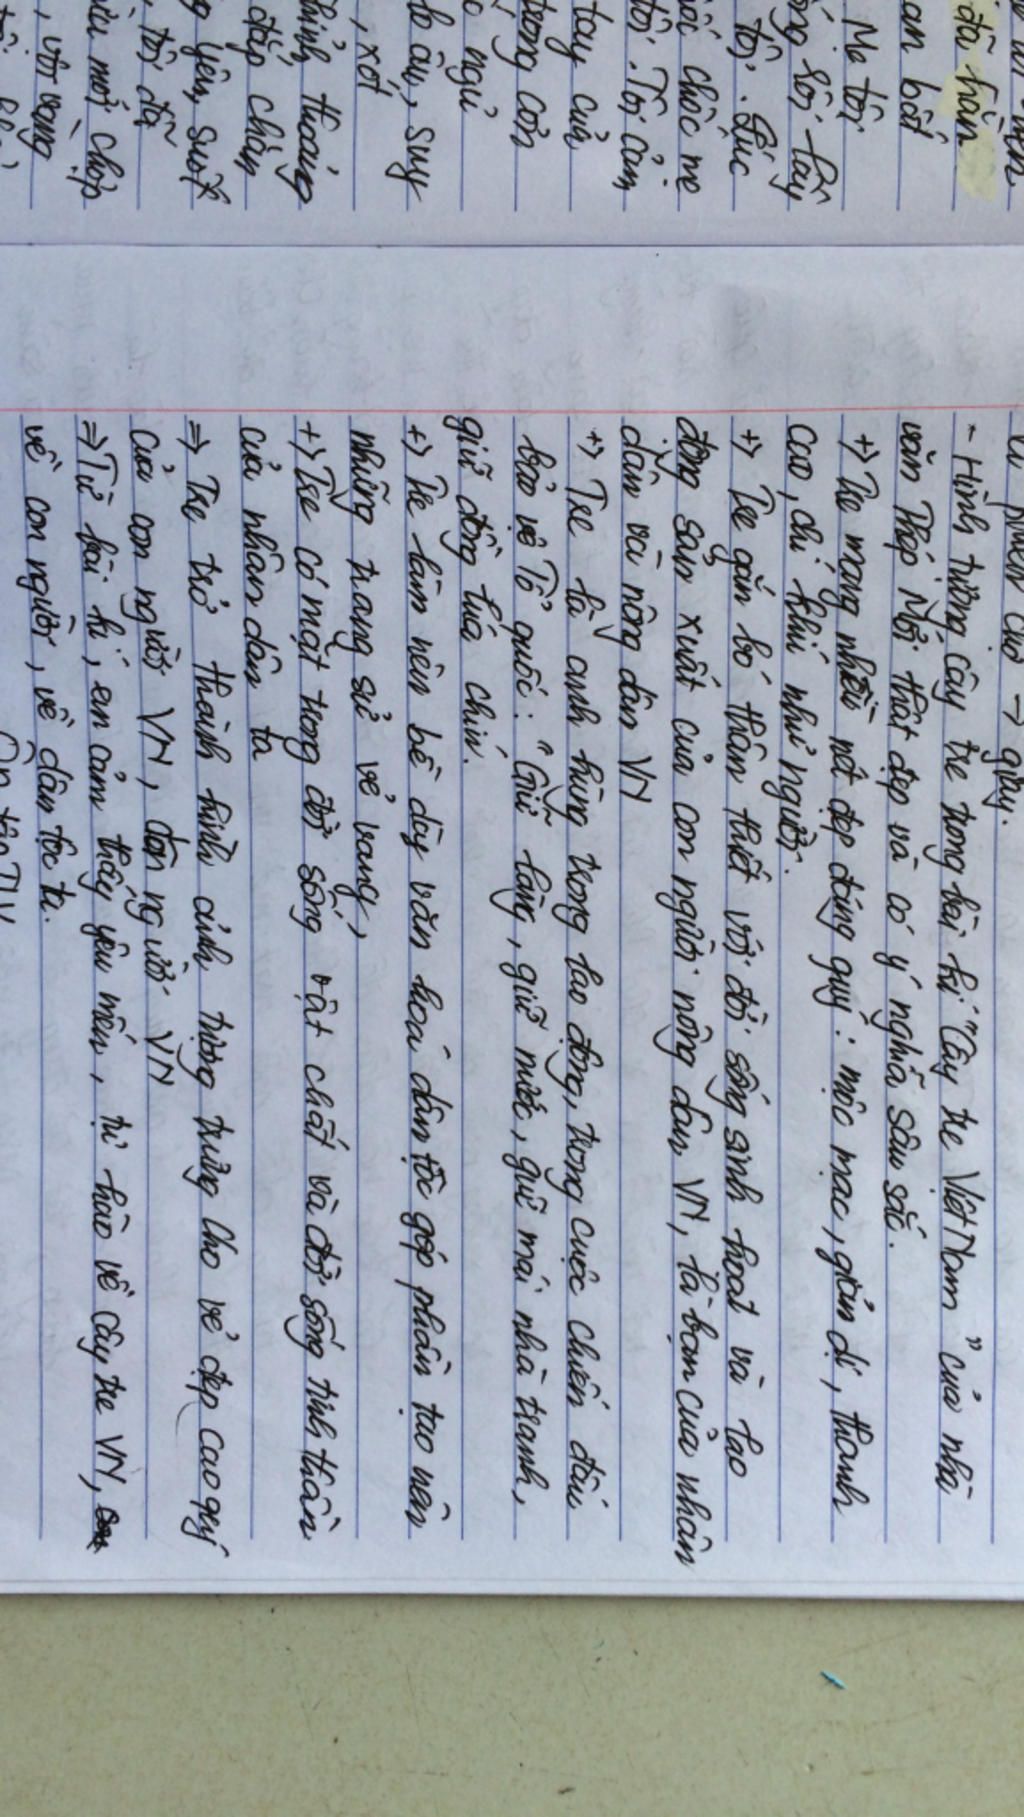 đã hằn
an bót
Mẹ tôi
tôi. Đúc
chốc mẹ
tôi. Tôi cảm
tay của
trong cơn
ngủ
âu, suy
, xót
thỉnh thoảng
đắp chăn
yên, suốt
, tôi đã
mới chợp
, vội vàng
→ giấy.
- Hình tượng cây tre trong bài kí "Cây tre Việt Nam" của nhà
văn Thép Mới thật đẹp và có ý nghĩa sâu sắc.
+) Tre mang nhiều nét đẹp đáng quý: mộc mạc, giản dị, thanh
cao, chí khí như người.
+) Tre gắn bó thân thiết với đời sống sinh hoạt và lao
động sản xuất của con người nông dân VN, là bạn của nhân
dân và nông dân VN
+) Tre là anh hùng trong lao động, trong cuộc chiến đấu
bảo vệ Tổ quốc: "Giữ làng, giữ nước, giữ mái nhà tranh,
giữ đồng lúa chín.
+) Tre làm nên bề dày văn hoá dân tộc góp phần tạo nên
những trang sử vẻ vang,
+) Tre có mặt trong đời sống vật chất và đời sống tinh thần
của nhân dân ta
=) Tre trở thành hình ảnh tượng trưng cho vẻ đẹp cao quý
của con người VN, dân người VN
=) Từ bài kí, em cảm thấy yêu mến, tự hào về cây tre VN,
về con người, về dân tộc ta.
Ôn tập TLV